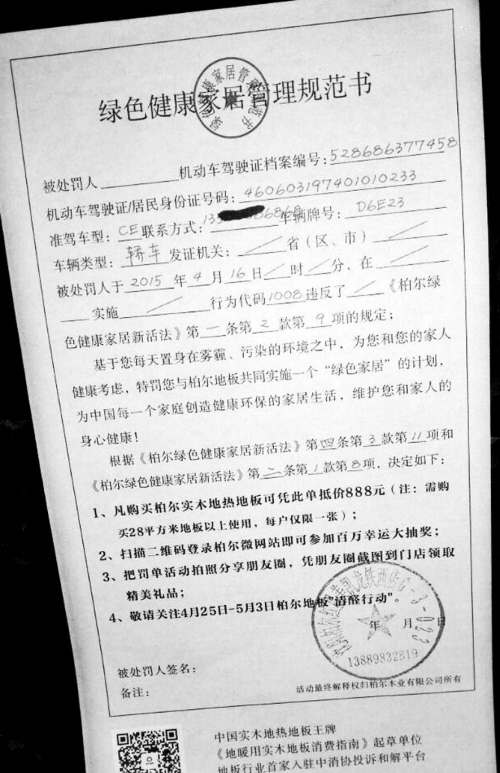 绿色健康家居管理规范书
被处罚人 机动车驾驶证档案编号:528686377458
机动车驾驶证/居民身份证号码:460603197401010233
准驾车型:CE 联系方式:13 86868 车辆牌号:D6E23
车辆类型:轿车 发证机关: 省(区、市)
被处罚人于2015年4月16日 时 分,在
实施 行为代码1008违反了 《柏尔绿
色健康家居新活法》第二条第2款第9项的规定;
基于您每天置身在雾霾、污染的环境之中,为您和您的家人
健康考虑,特罚您与柏尔地板共同实施一个“绿色家居”的计划,
为中国每一个家庭创造健康环保的家居生活,维护您和家人的
身心健康!
根据《柏尔绿色健康家居新活法》第四条第3款第11项和
《柏尔绿色健康家居新活法》第二条第1款第8项,决定如下:
1、凡购买柏尔实木地热地板可凭此单抵价888元(注:需购
买28平方米地板以上使用,每户仅限一张);
2、扫描二维码登录柏尔微网站即可参加百万幸运大抽奖;
3、把罚单活动拍照分享朋友圈,凭朋友圈截图到门店领取
精美礼品;
4、敬请关注4月25日-5月3日柏尔地板“清醒行动”。
年 月 日
13889832819
被处罚人签名:
备注:
活动最终解释权归柏尔木业有限公司所有
中国实木地热地板王牌
《地暖用实木地板消费指南》起草单位
地板行业首家入驻中消协投诉和解平台